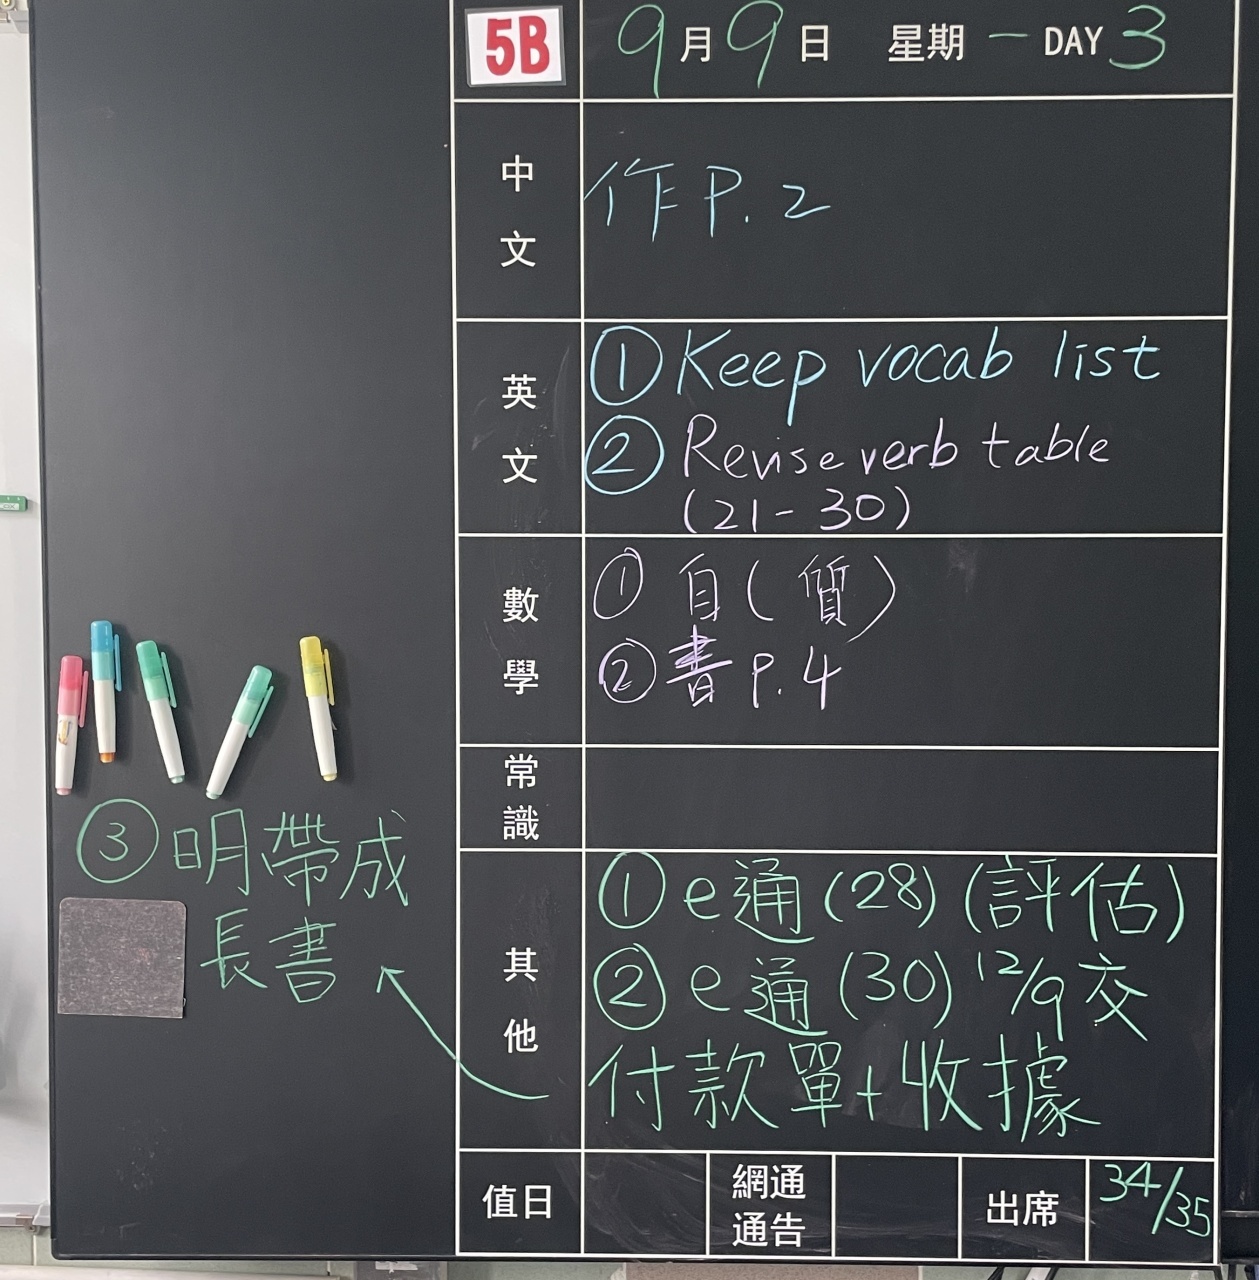 5B
9月9日 星期一 DAY 3
中文
作P.2
英文
① Keep vocab list
② Revise verb table
(21-30)
數學
① 自(質)
② 書P.4
常識
其他
① e通(28)(評估)
② e通(30) 12/9交
付款單+收據
③ 明帶成
長書
值日
網通
通告
出席
34/35